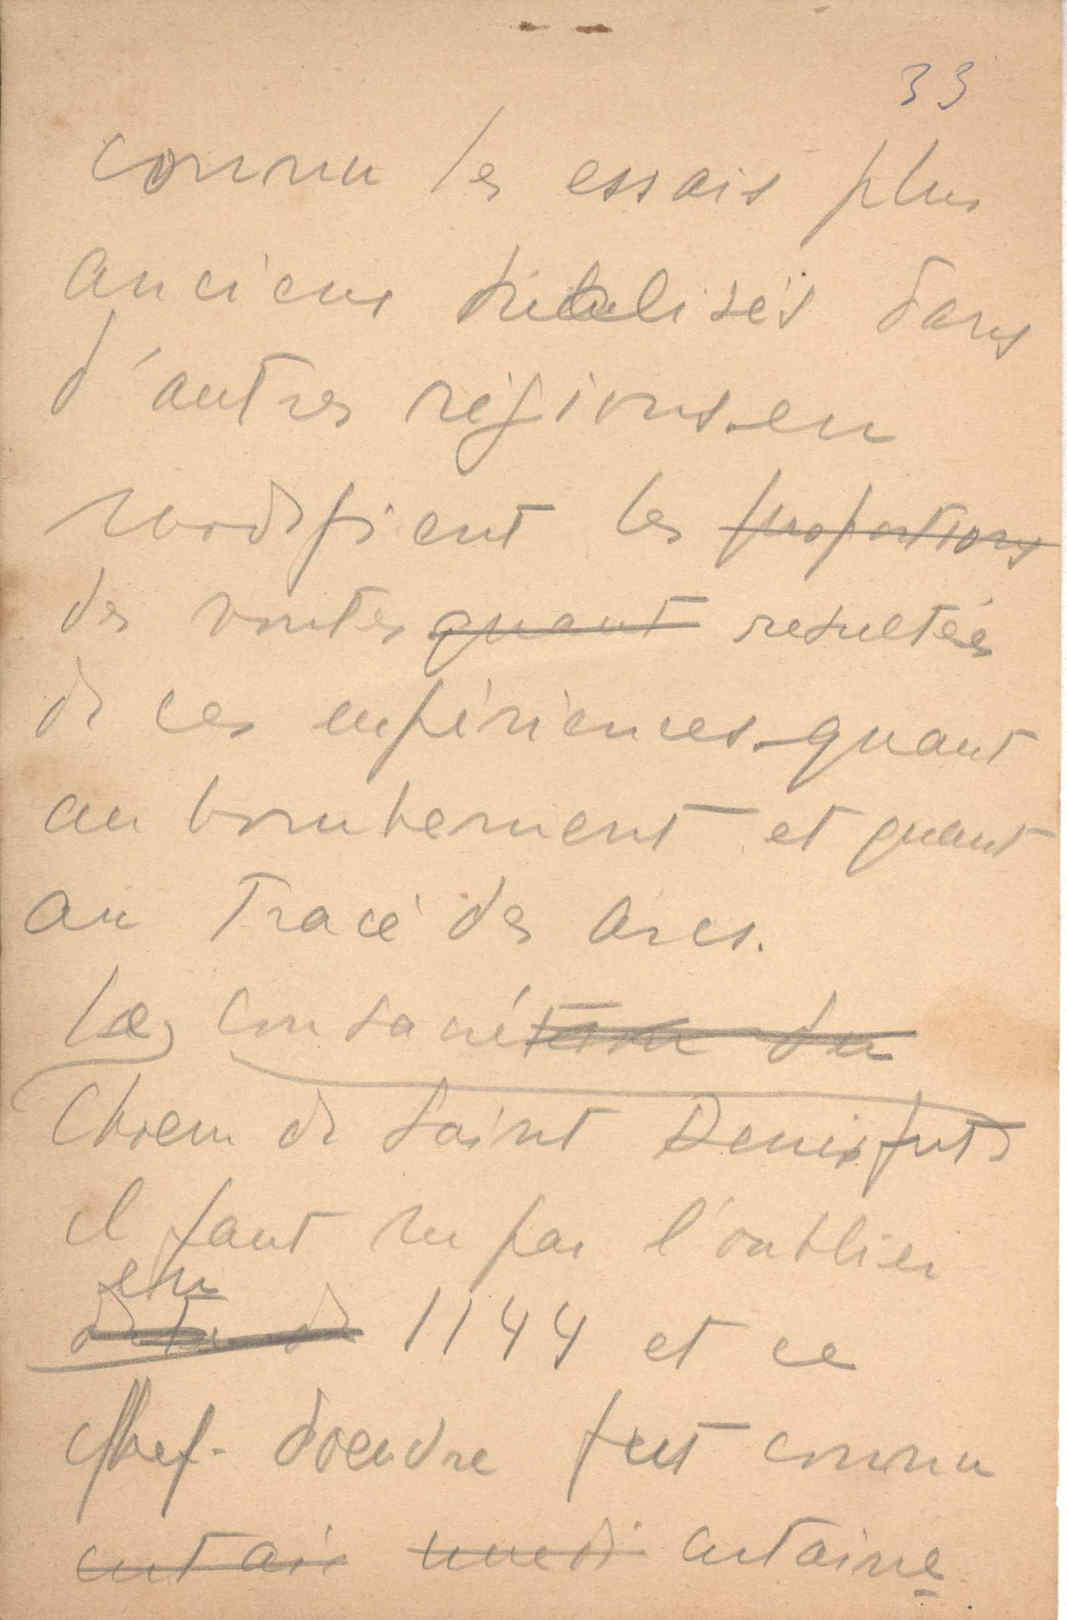 33
connu les essais plus
anciens réalisés dans
d'autres régions. en
modifient les proportions
des voutes quant resultées
de ces expériences. quant
au bombement et quant
au tracé des arcs.
Le consacré du
Choeur de Saint Denis fut
il faut ne pas l'oublier
en
date de 1144 et ce
chef-d'oeuvre fut connu
certaine